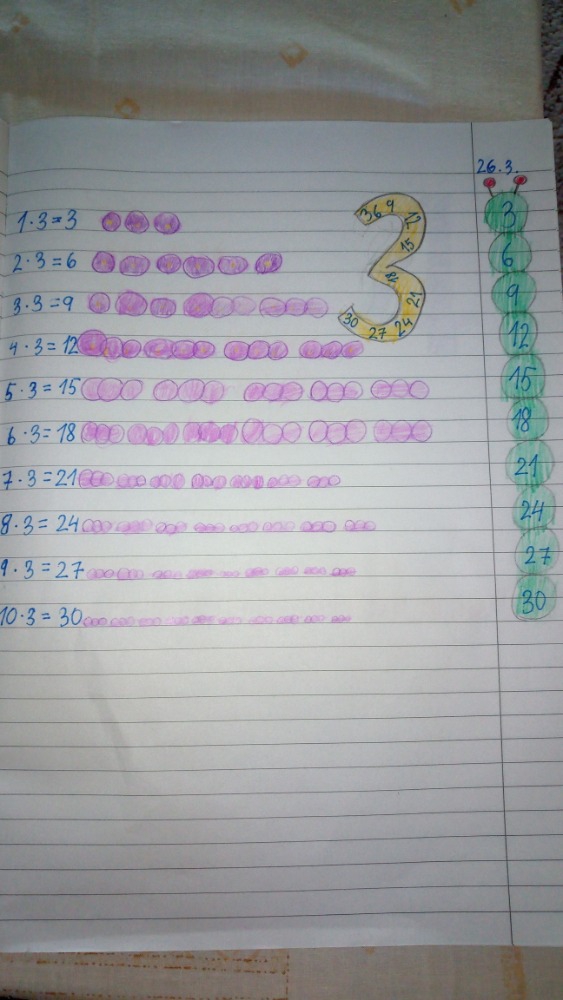 26.3.
1·3=3
2·3=6
3·3=9
4·3=12
5·3=15
6·3=18
7·3=21
8·3=24
9·3=27
10·3=30
3 6 9 12 15 18 21 24 27 30
3
6
9
12
15
18
21
24
27
30